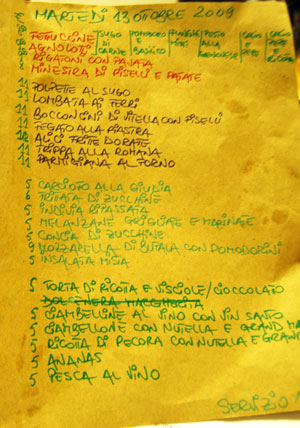 MARTEDÌ 13 OTTOBRE 2009
FETUCCINE SUGO POMODORO FUNGHI PESTO CACIO CACIO
AGNOLOTTI DI E ALLA E E
CARNE BASILICO PEPE
RIGATONI CON PANATA
MINESTRA DI PISELLI E PATATE
11 POLPETTE AL SUGO
11 LOMBATA AI FERRI
11 BOCCONCINI DI VITELLA CON PISELLI
11 FEGATO ALLA PIASTRA
11 ALICI FRITTE DORATE
11 TRIPPA ALLA ROMANA
11 PARMIGIANA AL FORNO
5 CARCIOFO ALLA GIUDIA
6 FRITTATA DI ZUCCHINE
5 INDIVIA RIPASSATA
5 MELANZANE GRIGLIATE E MARINATE
5 CONCIA DI ZUCCHINE
9 MOZZARELLA DI BUFALA CON POMODORINI
5 INSALATA MISTA
5 TORTA DI RICOTTA E VISCIOLE/CIOCCOLATO
DOLCENERA MACCHIATA
5 CIAMBELLINE AL VINO CON VIN SANTO
5 CIAMBELLONE CON NUTELLA E GRAND MA
5 RICOTTA DI PECORA CON NUTELLA E GRAN
5 ANANAS
5 PESCA AL VINO
SERVIZIO